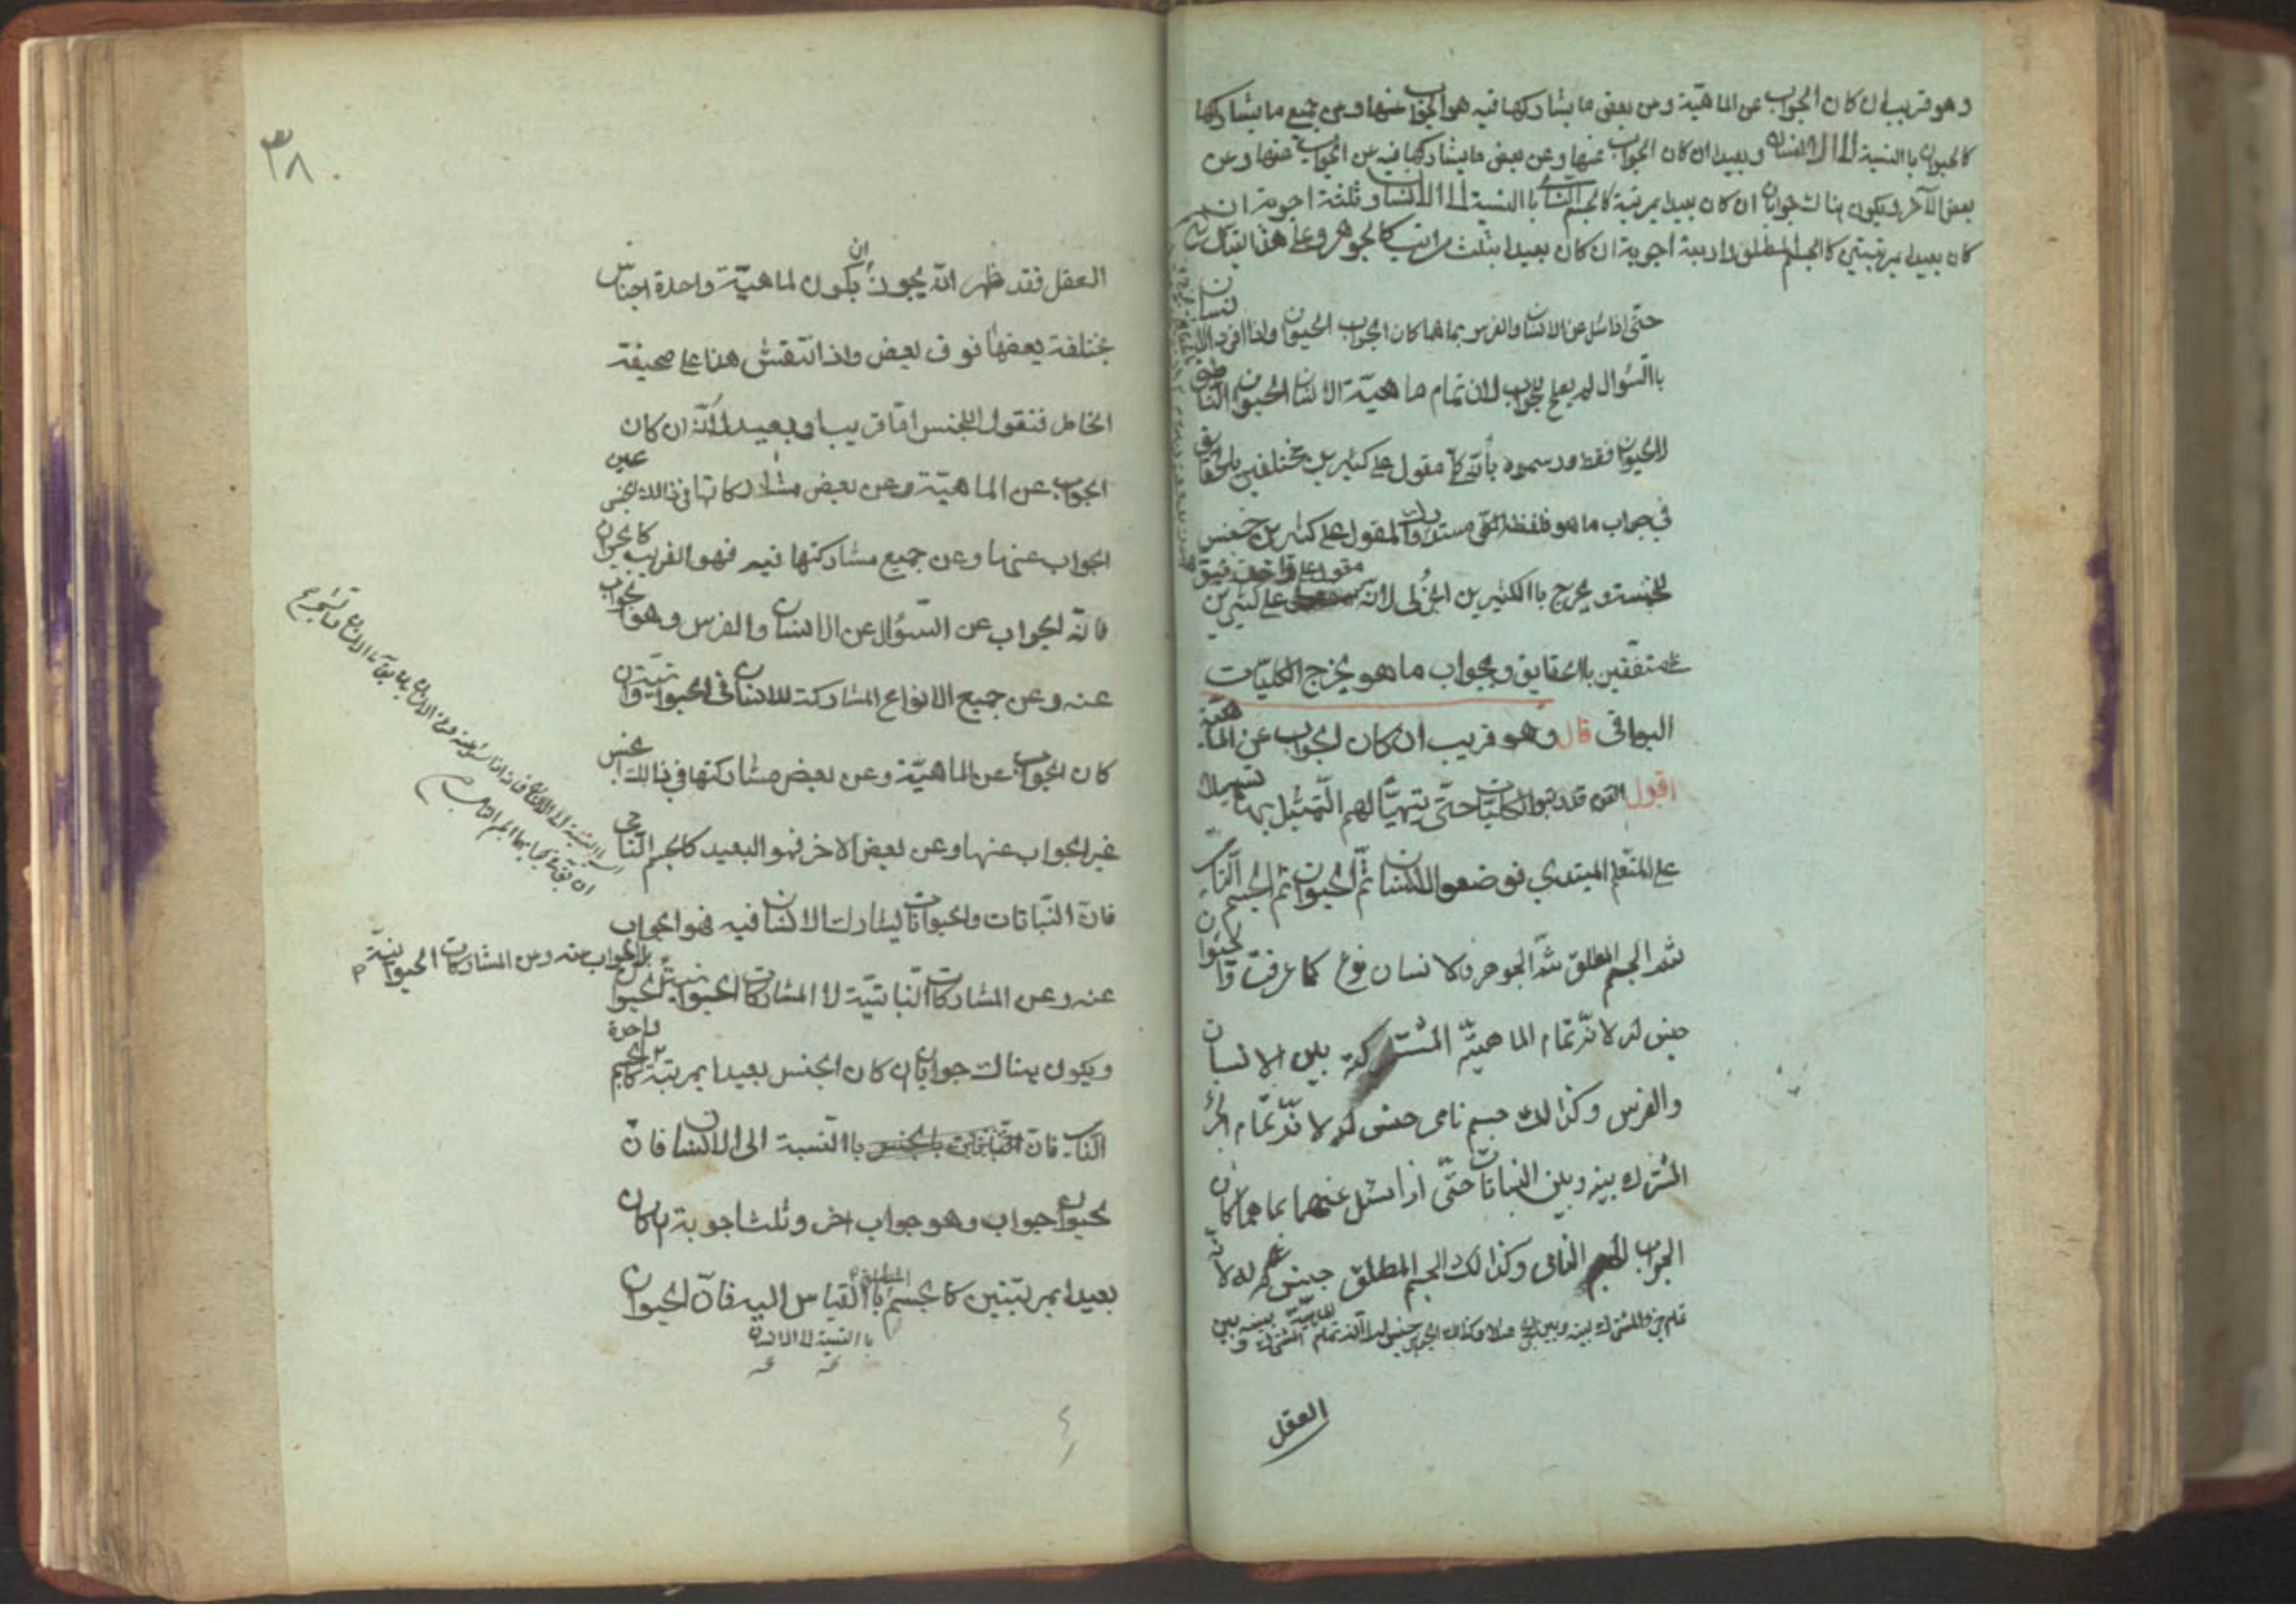 وهو قريب ان كان الجواب عن الماهية وعن بعض ما يشاركها فيه هو الجواب عنها وعن جميع ما يشاركها
كالحيوان باالنسبة الى الانسان وبعيد ان كان الجواب عنها وعن بعض ما يشاركها فيه غير الجواب عنها وعن
بعض الآخر ويكون هناك جوابان ان كان بعيدا بمرتبة كالجسم النامى باالنسبة الى الانسان وثلثة اجوبة ان
كان بعيدا بمرتبتين كالجسم المطلق واربعة اجوبة ان كان بعيدا بثلث مراتب كالجوهر وعلى هذا القياس
حتى اذا سئل عن الانسان والفرس بما هما كان الجواب الحيوان واذا افرد الانسان
باالسؤال لم يصلح للجواب لان تمام ماهية الانسان الحيوان الناطق
لا الحيوان فقط ورسموه بأنه كلى مقول على كثيرين مختلفين بالحقايق
فى جواب ما هو فلفظ الكلى مستدرك والمقول على كثيرين جنس
للخمسة ويخرج باالكثيرين الجزئى لانه مقول على واحد
متفقين باالحقايق وبجواب ما هو يخرج الكليات
البواقى قال وهو قريب ان كان الجواب عن الماهية
اقول القوم قد رتبوا الكليات حتى يتهيأ لهم التمثيل بها تسهيلا
على المتعلم المبتدي فوضعوا الانسان ثم الحيوان ثم الجسم النامى
ثم الجسم المطلق ثم الجوهر فالانسان نوع كما عرفت والحيوان
جنس له لانه تمام الماهية المشتركة بين الانسان
والفرس وكذالك جسم نامى جنس له لانه تمام الجزء
المشترك بينه وبين النباتات حتى اذا سئل عنهما بما هما كان
الجواب الجسم النامى وكذالك الجسم المطلق جنس له لانه
تمام الجزء المشترك بينه وبين الحجر مثلا وكذالك الجوهر جنس له لانه تمام الماهية المشترك بينه وبين
العقل
٣٨
العقل فقد ظهر انه يجوز ان يكون لماهية واحدة اجناس
مختلفة بعضها فوق بعض واذ انتقش هذا على صحيفة
الخاطر فنقول الجنس اما قريب او بعيد لأنه ان كان
الجواب عن الماهية وعن بعض مشاركاتها فى ذالك الجنس عين
الجواب عنها وعن جميع مشاركتها فيه فهو القريب كالحيوان
فانه الجواب عن السؤال عن الانسان والفرس وهو الجواب
عنه وعن جميع الانواع المشاركة للانسان فى الحيوانية وان
كان الجواب عن الماهية وعن بعض مشاركتها فى ذالك الجنس
غير الجواب عنها وعن بعض الاخر فهو البعيد كالجسم النامى
فان النباتات والحيوانات يشارك الانسان فيه فهو الجواب
عنه وعن المشاركات النباتية لا المشاركات الحيوانية
بل الجواب عنه وعن المشاركات الحيوانية
الحيوان
ويكون هناك جوابان ان كان الجنس بعيدا بمرتبة واحدة كالجسم
النامى باالنسبة الى الانسان فان
الحيوان جواب وهو جواب اخر وثلث اجوبة ان كان
بعيدا بمرتبتين كالجسم المطلق باالقياس اليه فان الحيوان
باالنسبة الى الانسان